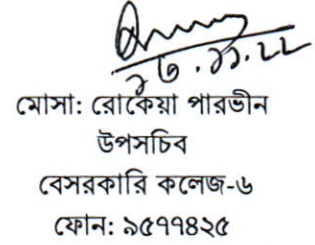 ২৩.১১.২২
মোসা: রোকেয়া পারভীন
উপসচিব
বেসরকারি কলেজ-৬
ফোন: ৯৫৭৭৪২৫